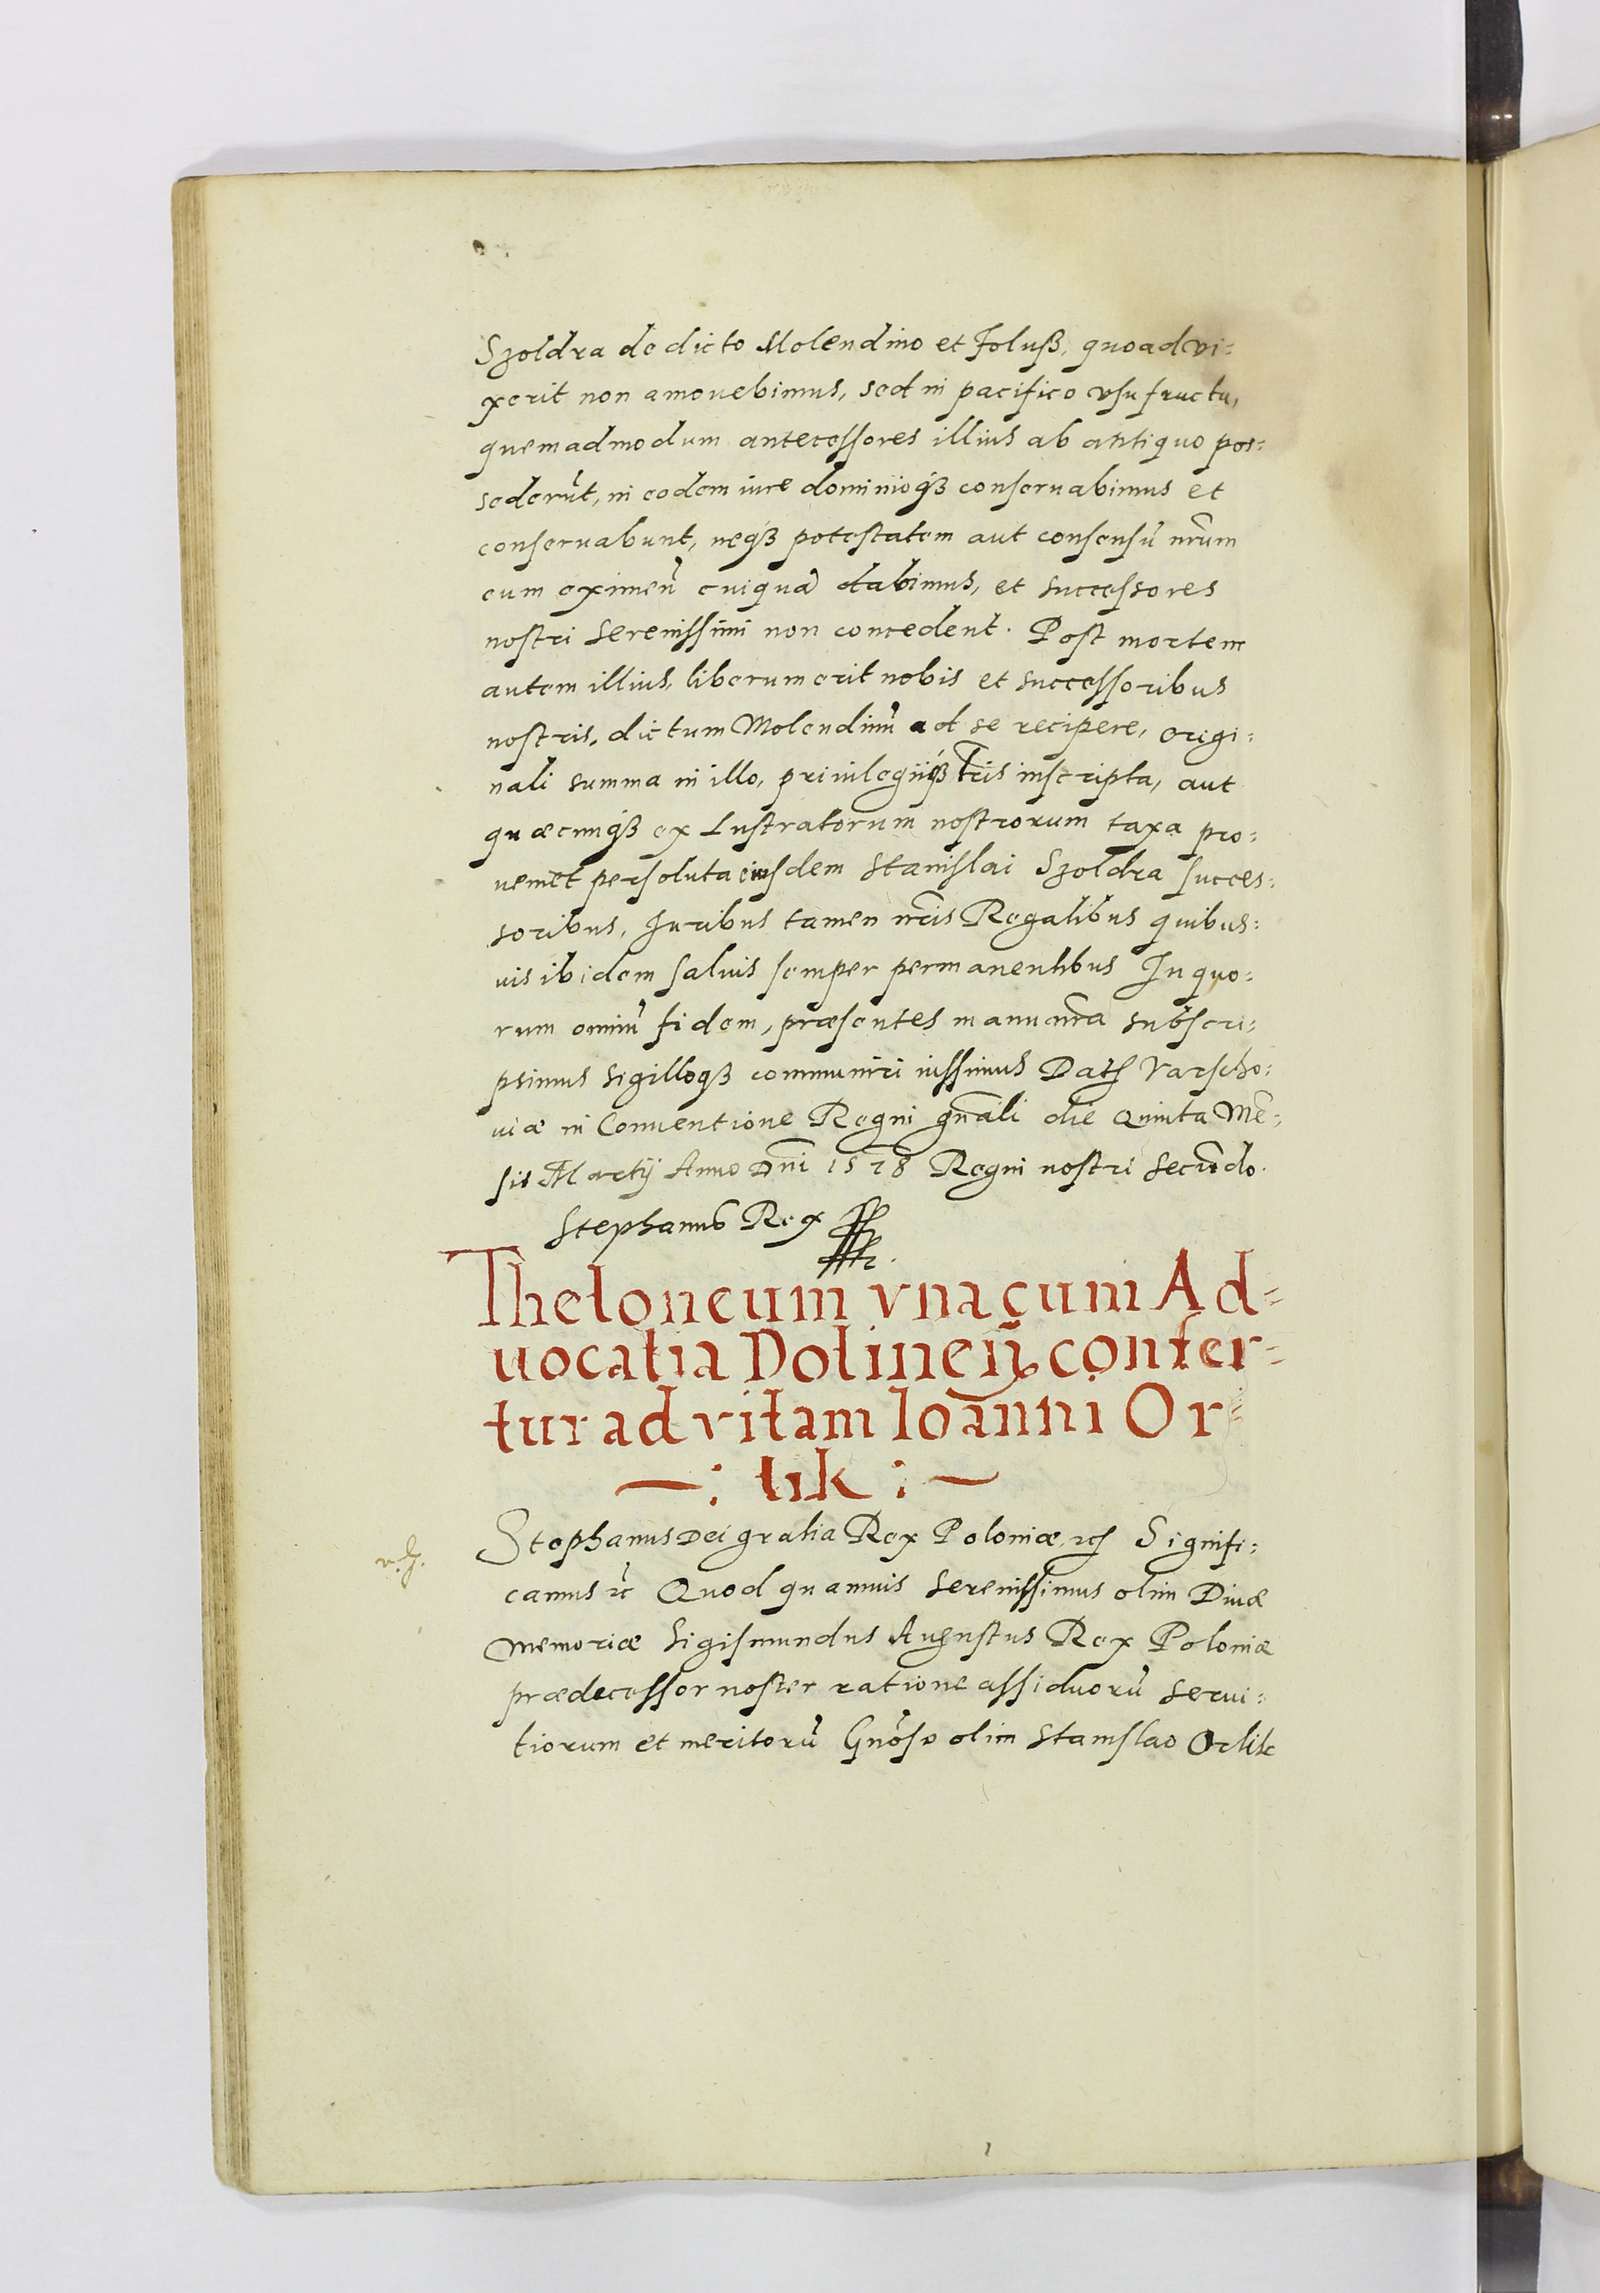 Szoldra de dicto Molendino et Foluß, quoad vi:
xerit non amovebimus, sed in pacifico vsufructu,
quemadmodum antecessores illius ab antiquo pos:
sederūt, in eodem iure dominioqȝ conseruabimus et
conseruabunt, neqȝ potestatem aut consensū nr̄um
eum eximen̄ cuiquā dabimus, et successores
nostri Serenissimi non concedent. Post mortem
autem illius, liberum erit nobis et successoribus
nostris, dictum Molendinū ad se recipere, origi:
nali summa in illo, priuilegiisqȝ lr̄is inscripta, aut
quæcunqȝ ex Lustratorum nostrorum taxa pro:
ueniet persoluta eiusdem Stanislai Szoldra succes:
soribus, Iuribus tamen nr̄is Regalibus quibus:
uis ibidem saluis semper permanentibus In quo:
rum omniū fidem, præsentes manu nr̄a subscri:
psimus sigilloqȝ communiri iussimus Datȝ Varscho:
uiæ in Conuentione Regni gn̄ali die Quinta Mē:
sis Martij Anno Dn̄i 1578 Regni nostri Secundo.
Stephanus Rex
Theloneum vna cum Ad=
uocatia Dolinen̄ confer=
tur ad vitam Ioanni Or=
—: lik :—
Stephanus Dei gratia Rex Poloniæ ꝛcȝ Signifi:
camus ꝛc Quod quamuis Serenissimus olim Diuæ
Memoriæ Sigismundus Augustus Rex Poloniæ
prædecessor noster ratione assiduorū serui:
tiorum et meritorū Gn̄oso olim Stanislao Orlik